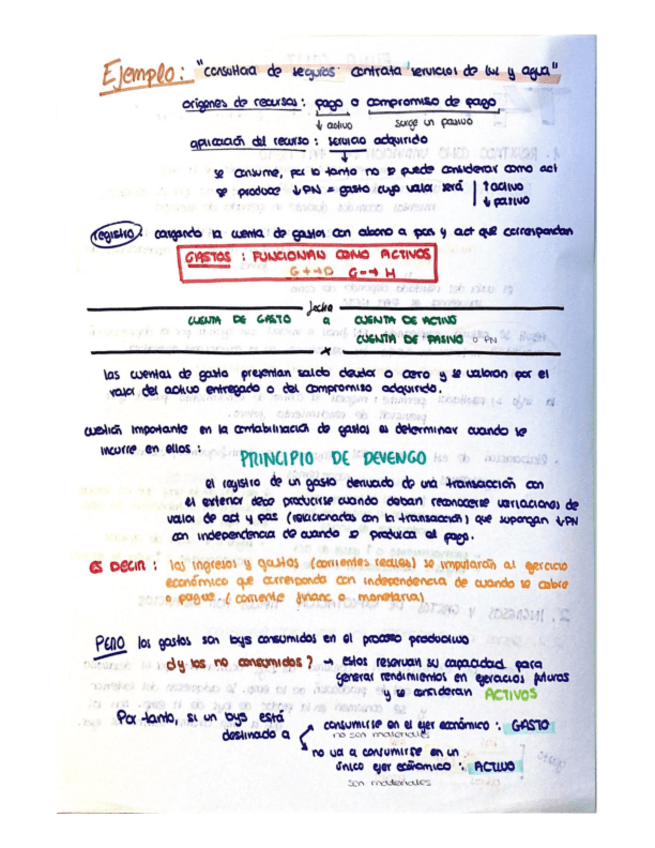 Ejemplo: "consultora de seguros contrata servicios de luz y agua"
orígenes de recursos: pago o compromiso de pago
↓ activo surge un pasivo
aplicación del recurso: servicio adquirido
↓
se consume, por lo tanto no se puede considerar como act
se produce ↓PN = gasto cuyo valor será ↑activo
↓ pasivo
registro: cargando la cuenta de gastos con abono a pas y act que correspondan
GASTOS: FUNCIONAN COMO ACTIVOS
G+→D G-→H
fecha
CUENTA DE GASTO a CUENTA DE ACTIVO
CUENTA DE PASIVO o PN
x
las cuentas de gasto presentan saldo deudor o cero y se valoran por el
valor del activo entregado o del compromiso adquirido.
cuestión importante en la contabilización de gastos es determinar cuando se
incurre en ellos:
PRINCIPIO DE DEVENGO
el registro de un gasto derivado de una transacción con
el exterior debe producirse cuando deban reconocerse variaciones de
valor de act y pas (relacionadas con la transacción) que supongan ↓PN
con independencia de cuando se produzca el pago.
ES DECIR: los ingresos y gastos (corrientes reales) se imputarán al ejercicio
económico que corresponda con independencia de cuando se cobre
o pague (corriente financ o monetaria)
PERO los gastos son byss consumidos en el proceso productivo
¿Y los no consumidos? → estos reservan su capacidad para
generar rendimientos en ejercicios futuros
y se consideran ACTIVOS
Por tanto, si un bys está
destinado a
consumirse en el ejer económico ∴ GASTO
no son materiales
no va a consumirse en un
único ejer económico ∴ ACTIVO
son materiales